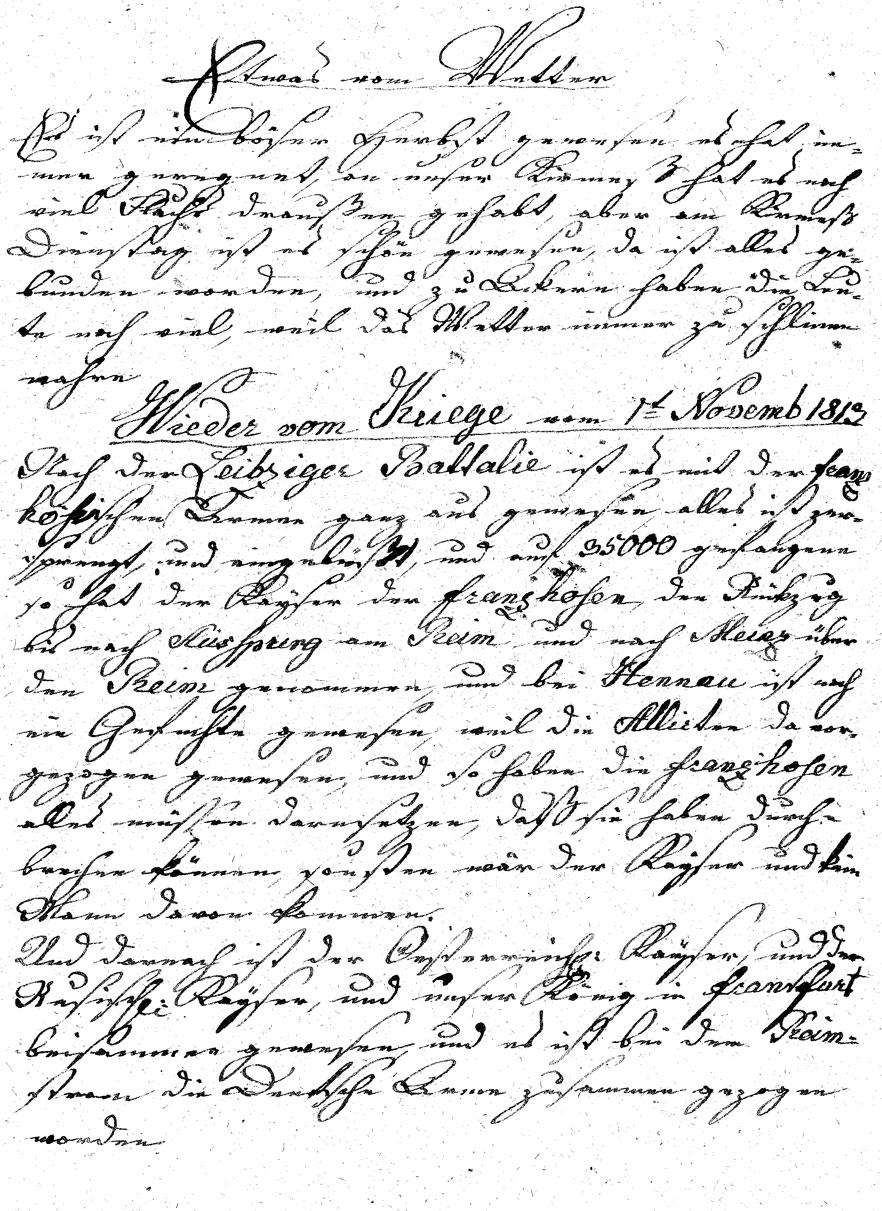 Etwas vom Wetter
Es ist ein böser Herbst gewesen es hat im=
mer geregnet, an unser Kirmeß hat es noch
viel Flachs draußen gehabt, aber am Kirmeß
Dienstag ist es schön gewesen, da ist alles ge=
bunden worden, und zu Ackern haben die Leu=
te noch viel, weil das Wetter immer zu schlimm
wahre
Wieder vom Kriege vom 1t Novemb 1813
Nach der Leibziger Battalie ist es mit der fran
hösischen Armee ganz aus gewesen alles ist zer=
sprengt, und eingebüßt, und auf 35000 gefangene
so hat der Kayser der franzhosen, den Rückzug
bis nach am Reim und nach Meinz über
den Reim genommen, und bei Hennau ist noch
ein Gefechte gewesen, weil die Alliirten da vor=
gezogen gewesen, und so haben die franzhosen
alles müssen daransetzen, daß sie haben durch=
brechen können, sonsten wär der Kayser und kein
Mann davon kommen.
Und darnach ist der Oesterreich: Kayser, und der
Rusische Kayser, und unser König in frankfurt
beisammen gewesen, und es ist bei dem Reim=
strom die Deutsche Armee zusammen gezogen
worden